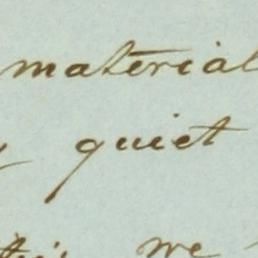 material
quiet
we